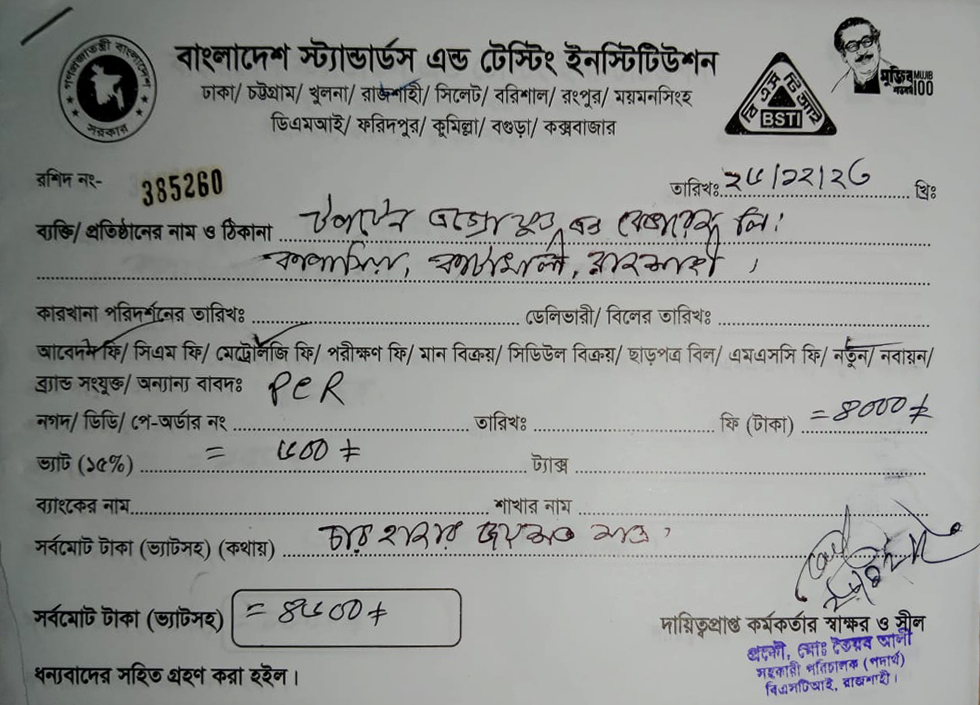 গণপ্রজাতন্ত্রী বাংলাদেশ সরকার
বাংলাদেশ স্ট্যান্ডার্ডস এন্ড টেস্টিং ইনস্টিটিউশন
ঢাকা/ চট্টগ্রাম/ খুলনা/ রাজশাহী/ সিলেট/ বরিশাল/ রংপুর/ ময়মনসিংহ
ডিএমআই/ ফরিদপুর/ কুমিল্লা/ বগুড়া/ কক্সবাজার
বিএসটিআই
BSTI
মুজিব শতবর্ষ MUJIB 100
রশিদ নং- 385260
তারিখঃ ২৮/১২/২৩ খ্রিঃ
ব্যক্তি/ প্রতিষ্ঠানের নাম ও ঠিকানা এগ্রো ফুড এন্ড বেভারেজ লি:
কাপাসিয়া, কাটাখালী, রাজশাহী।
কারখানা পরিদর্শনের তারিখঃ ডেলিভারী/ বিলের তারিখঃ
আবেদন ফি/ সিএম ফি/ মেট্রোলজি ফি/ পরীক্ষণ ফি/ মান বিক্রয়/ সিডিউল বিক্রয়/ ছাড়পত্র বিল/ এমএসসি ফি/ নতুন/ নবায়ন/
ব্র্যান্ড সংযুক্ত/ অন্যান্য বাবদঃ PCR
নগদ/ ডিডি/ পে-অর্ডার নং তারিখঃ ফি (টাকা) = ৪০০০/-
ভ্যাট (১৫%) = ৬০০/- ট্যাক্স
ব্যাংকের নাম শাখার নাম
সর্বমোট টাকা (ভ্যাটসহ) (কথায়) চার হাজার ছয়শত মাত্র
সর্বমোট টাকা (ভ্যাটসহ) = ৪৬০০/-
দায়িত্বপ্রাপ্ত কর্মকর্তার স্বাক্ষর ও সীল
প্রকৌ, মোঃ তৈয়ব আলী
সহকারী পরিচালক (পদার্থ)
বিএসটিআই, রাজশাহী।
ধন্যবাদের সহিত গ্রহণ করা হইল।